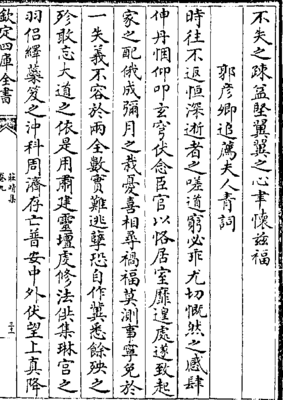 不失之疎益堅翼翼之心聿懷玆福
郭彥卿追薦夫人青詞
時往不返恒深逝者之嗟道窮必乖尤切慨然之感肆
伸丹悃仰叩玄穹伏念臣官以恪居室靡遑處遂致起
家之配俄成彌月之烖憂喜相尋禍福莫測事寧免於
一失義不容於兩全數實難逃孽恐自作冀悉餘殃之
殄敢忘大道之依是用肅建靈壇虔修法供集琳宮之
羽侶繹蘂笈之沖科周濟存亡普安中外伏望上真降
欽定四庫全書
莊靖集
卷九